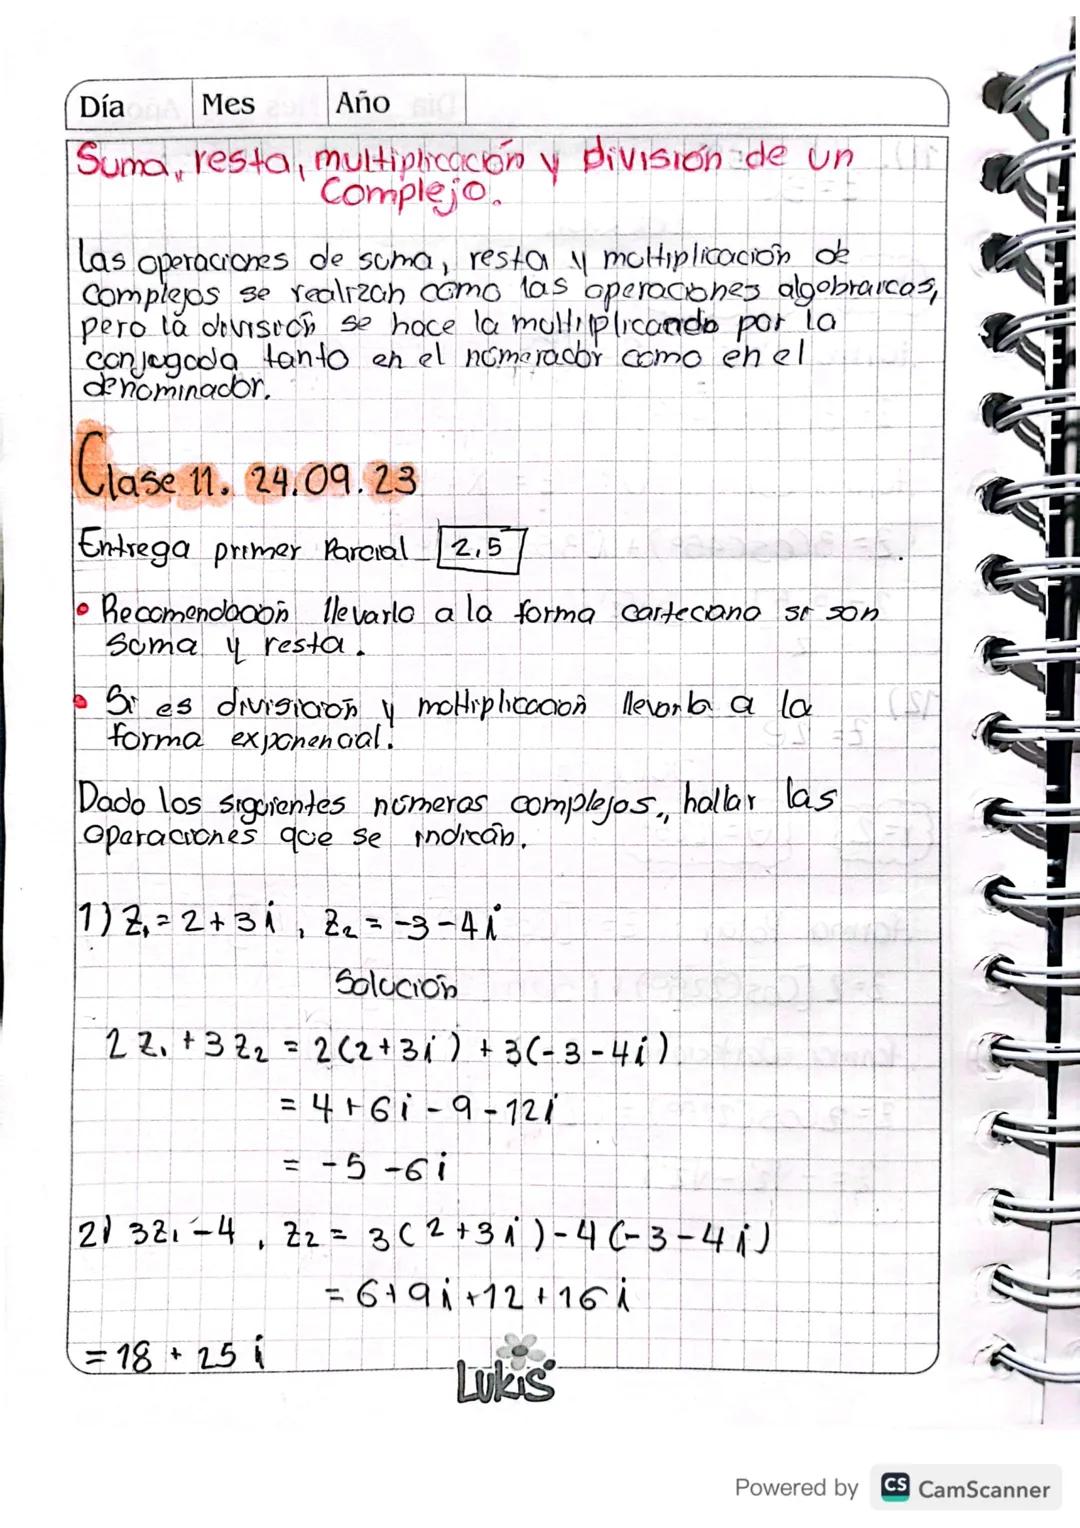 Día Mes Año
Suma, resta, multiplicación y división de un
Complejo.
las operaciones de suma, resta y multiplicación de
complejos se realizan como las operaciones algebraicas,
pero la division se hace la multiplicando por la
conjugada tanto en el numerador como en el
denominador.
Clase 11. 24.09.23
Entrega primer Parcial 2,5
• Recomendación llevarlo a la forma carteciana si son
suma y resta.
• Si es division y multiplicación llevarla a la
forma exponencial.
Dado los siguientes números complejos, hallar las
operaciones que se indican.
1) Z₁ = 2 + 3i , Z₂ = -3 - 4i
Solución
2 Z₁ + 3 Z₂ = 2(2+3i) + 3(-3-4i)
= 4 + 6i - 9 - 12i
= -5 - 6i
2) 3Z₁ - 4 , Z₂ = 3(2+3i) - 4(-3-4i)
= 6 + 9i + 12 + 16i
= 18 + 25i
Lukis
Powered by CS CamScanner